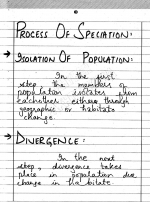 PROCESS OF SPECIATION:
ISOLATION OF POPULATION:
In the first
step, the members of
population isolates from
eachother either through
geographic or habitate
change.
DIVERGENCE:
In the next
step, divergence takes
place in population due
change in the bitate